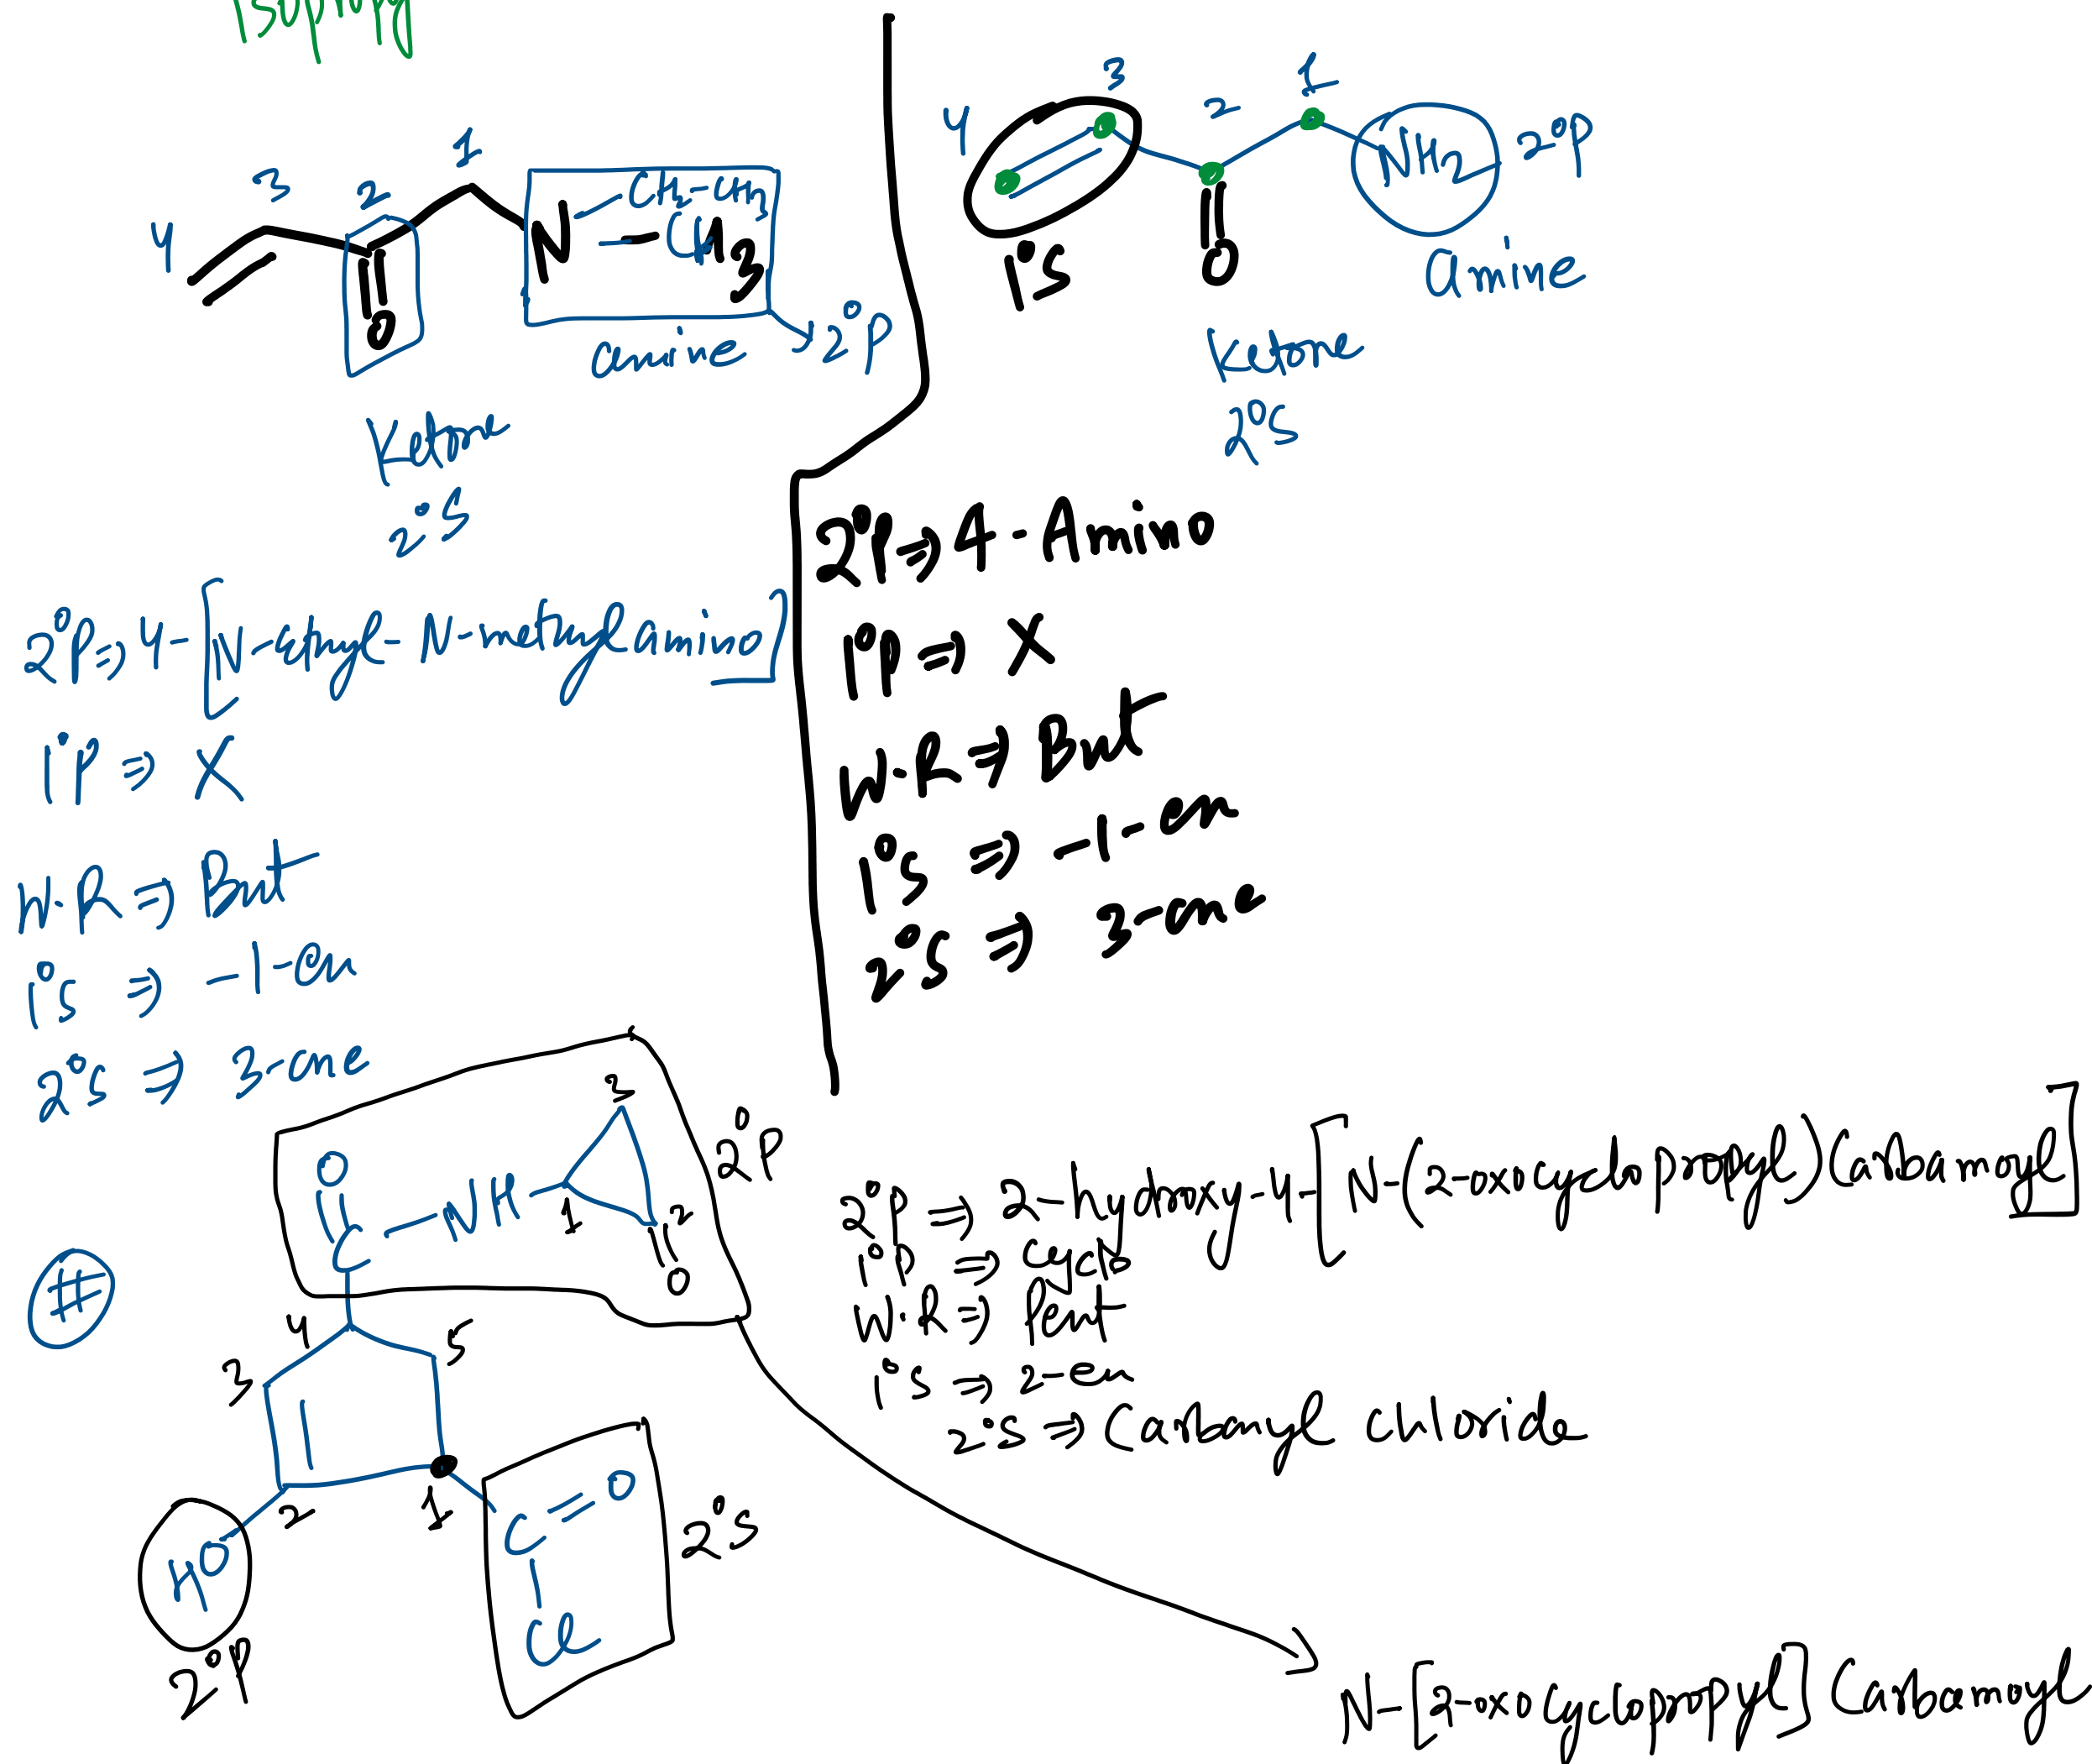 4 3 2 1
N - CH2-CH3
- CH3
O
amine 2°P
Ketone
2°S
2°P ⇒ 4-[N-ethyl-N-methylamino]
1°P ⇒ X
W.R ⇒ But
1°S ⇒ -1-en
2°S ⇒ 3-one
4 3 2 1
NH2 2°P
1°S
O
amine
Ketone
2°S
2°P ⇒ 4-Amino
1°P ⇒ X
W.R ⇒ But
1°S ⇒ -1-en
2°S ⇒ 3-one
#
O
C - NH
1 2 3
O
2°P
4 5
3
2 1
HO
2°P
C = O
Cl
2°S
2°P ⇒ 2-hydroxy-4-[N-(2-oxocyclopropyl)Carbamoyl]
1°P ⇒ cyclo
W.R ⇒ Pent
1°S ⇒ 2-en
2°S ⇒ Carbonyl chloride
N-[2-oxo cyclopropyl] Carbamoyl